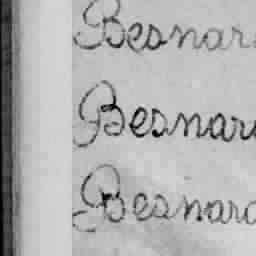 Besnar
Besnar
Besnard